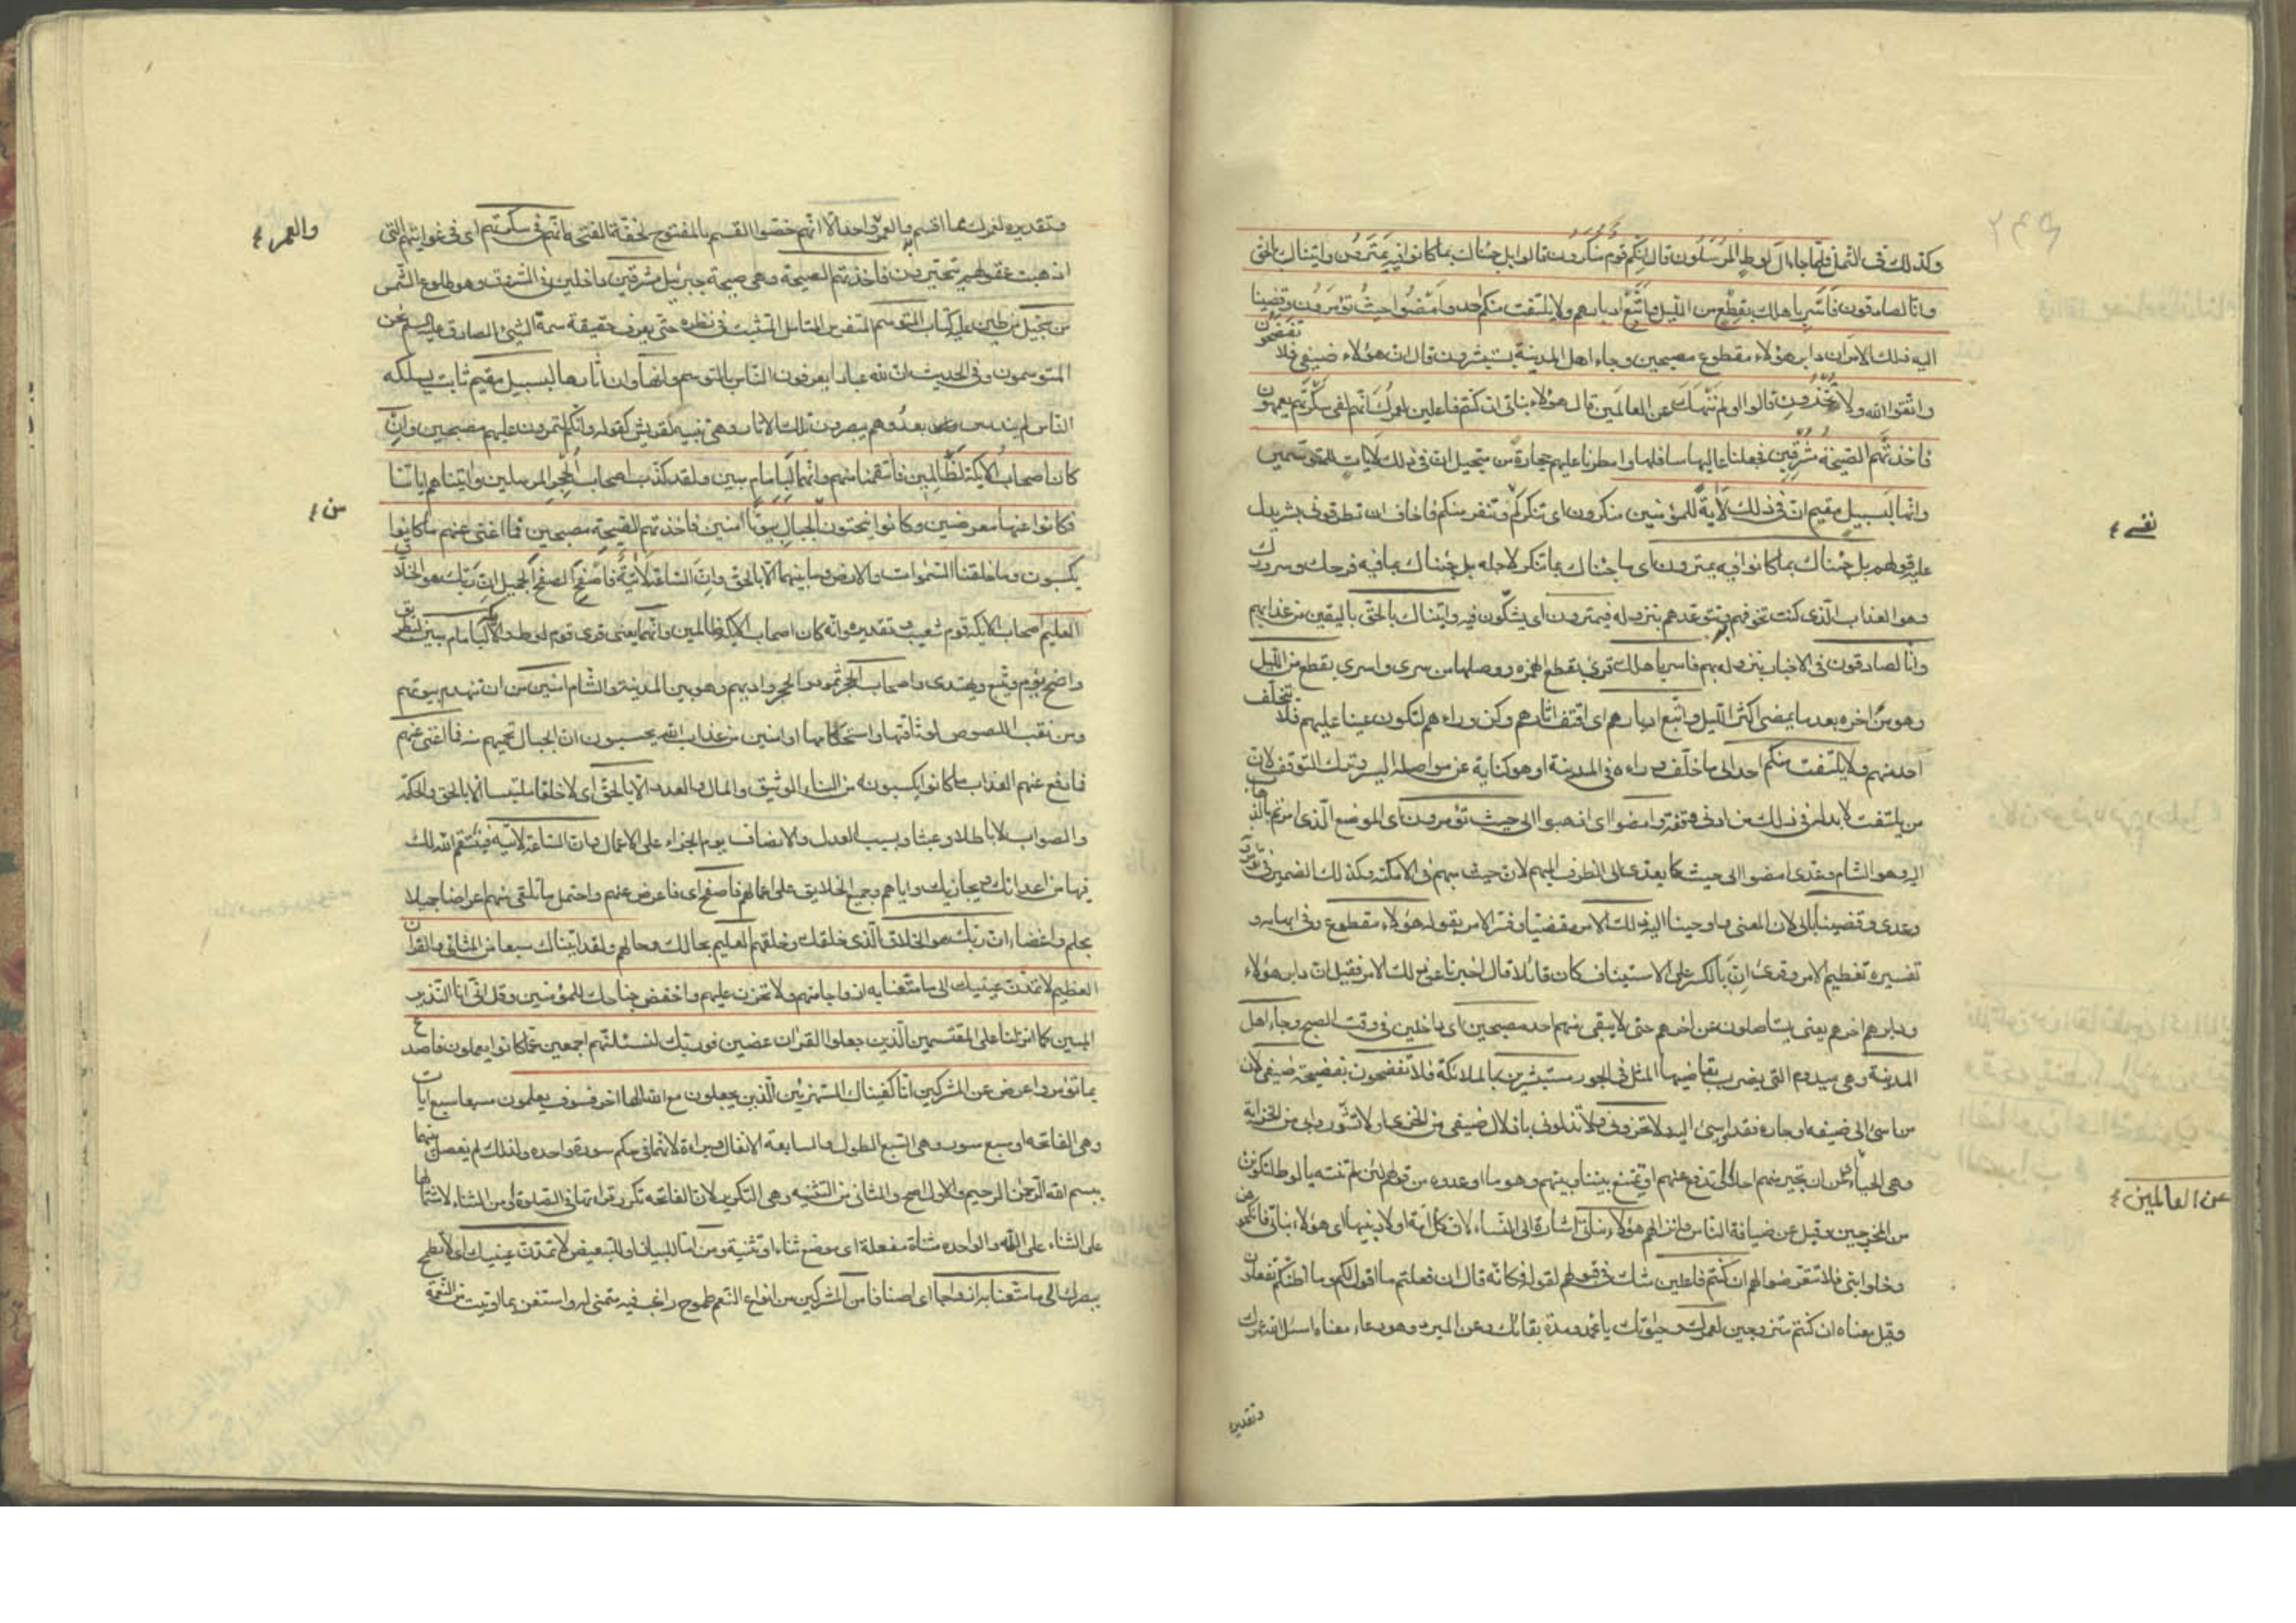 وكذلك في النمل فلما جاء آل لوط المرسلون قال إنكم قوم منكرون قالوا بل جئناك بما كانوا فيه يمترون واتيناك بالحق
وانا لصادقون فاسر باهلك بقطع من الليل واتبع ادبارهم ولا يلتفت منكم احد وامضوا حيث تؤمرون وقضينا
اليه ذلك الامر ان دابر هؤلاء مقطوع مصبحين وجاء اهل المدينة يستبشرون قال ان هؤلاء ضيفي فلا تفضحون
واتقوا الله ولا تخزون قالوا اولم ننهك عن العالمين قال هؤلاء بناتي ان كنتم فاعلين لعمرك انهم لفي سكرتهم يعمهون
فاخذتهم الصيحة مشرقين فجعلنا عاليها سافلها وامطرنا عليهم حجارة من سجيل ان في ذلك لايات للمتوسمين
وانها لبسبيل مقيم ان في ذلك لاية للمؤمنين منكرون اى تنكركم وتنفر منكم فاخاف ان تطرقوني بشر بدل
نفسى
عليه قولهم بل جئناك بما كانوا فيه يمترون اى ما جئناك بما تنكر لاجله بل جئناك بما فيه فرحك وسرورك
وهو العذاب الذى كنت تخوفهم وتتوعدهم بنزوله فيمترون اى يشكون فيه واتيناك بالحق باليقين من عذابهم
وانا لصادقون في الاخبار بنزوله بهم فاسر باهلك قرئ بقطع الهمزه ووصلها من سرى واسرى بقطع من الليل
وهو من اخره بعد ما يمضى اكثر الليل واتبع ادبارهم اى اقتف اثارهم وكن وراءهم لتكون عينا عليهم فلا يتخلف
احد منهم ولا يلتفت منكم احد الى ما خلف وراءه في المدينة او هو كناية عن مواصلة السير وترك التوقف لان
من يلتفت لا بد له في ذلك من ادنى وقفة وامضوا اى اذهبوا الى حيث تؤمرون اى الموضع الذى امرتم بالذهاب
اليه وهو الشام وعدى امضوا الى حيث كما يعدى الى الظرف المبهم لان حيث مبهم في الامكنة وكذلك الضمير في تؤمرون
وعدى وقضينا بالى لان المعنى واوحينا اليه ذلك الامر مقضيا وفسر الامر بقوله هؤلاء مقطوع وفي ابهامه و
تفسيره تعظيم الامر وقرئ ان بالكسر على الاستيناف كان قائلا قال اخبرنا عن ذلك الامر فقيل ان دابر هؤلاء
ودابرهم اخرهم يعنى يستاصلون عن اخرهم حتى لا يبقى منهم احد مصبحين اى داخلين في وقت الصبح وجاء اهل
المدينة وهى سدوم التى يضرب بقاضيها المثل في الجور مستبشرين بالملائكة فلا تفضحون بفضيحة ضيفي لان
من اسئ الى ضيفه او جاره فقد اسئ اليه ولا تخزون ولا تذلوني باذلال ضيفي من الخزى او لا تشوروا بى من الخزاية
وهى الحياء عن ان تجير منهم احدا او تدفع عنهم او تمنع بيننا وبينهم وهو ما اوعدوه من قولهم لئن لم تنته يا لوط لتكونن
عن العالمين
من المخرجين وقيل عن ضيافة الناس وانزالهم هؤلاء بناتى اشارة الى النساء لان كل امة اولاد نبيها اى هؤلاء بناتى فانكحوهن
وخلوا بنى فلا تتعرضوا لهم ان كنتم فاعلين شك في قبولهم لقوله فكانه قال ان فعلتم ما اقول لكم وما اظنكم تفعلون
وقيل معناه ان كنتم متزوجين لعمرك وحيوتك يا محمد ومدة بقائك وعن المبرد هو دعاء معناه اسئل الله عمرك
وتقديره
وتقديره لعمرك مما اقسم به والعمر واحد الا انهم خصوا القسم بالمفتوح لخفة الفتحة انهم في سكرتهم اى في غوايتهم التى
والعمر
اذهبت عقولهم يتحيرون فاخذتهم الصيحة وهى صيحة جبرئيل مشرقين داخلين في الشروق وهو طلوع الشمس
من سجيل من طين عليه كتاب المتوسم المتفرس المتامل المتثبت في نظره حتى يعرف حقيقة سمة الشئ الصادق عليه السلم نحن
المتوسمون وفي الحديث ان لله عبادا يعرفون الناس بالتوسم وانها وان اثارها لبسبيل مقيم ثابت يسلكه
الناس لم يندرس بعد وهم يبصرون تلك الاثار وهى تنبيه لقريش كقوله وانكم لتمرون عليهم مصبحين وان
كان اصحاب الايكة لظالمين فانتقمنا منهم وانهما لبامام مبين ولقد كذب اصحاب الحجر المرسلين واتيناهم اياتنا
فكانوا عنها معرضين وكانوا ينحتون الجبال بيوتا امنين فاخذتهم الصيحة مصبحين فما اغنى عنهم ما كانوا
من
يكسبون وما خلقنا السموات والارض وما بينهما الا بالحق وان الساعة لاتية فاصفح الصفح الجميل ان ربك هو الخلاق
العليم اصحاب الايكه قوم شعيب وتقديره وانه كان اصحاب الايكة ظالمين وانهما يعنى قرى قوم لوط والايكه لبامام مبين لبطريق
واضح يؤم ويتبع ويهتدى واصحاب الحجر ثمود والحجر واديهم وهو بين المدينة والشام امنين من ان تنهدم بيوتهم
ومن نقب اللصوص لوثاقتها واستحكامها او امنين من عذاب الله يحسبون ان الجبال تحميهم منه فما اغنى عنهم
فما دفع عنهم العذاب ما كانوا يكسبونه من البناء الوثيق والمال والعدد الا بالحق اى لا خلقا ملتبسا الا بالحق والحكمة
والصواب لا باطلا وعبثا وبسبب العدل والانصاف يوم الجزاء على الاعمال وان الساعة لاتية فينتقم الله لك
فيها من اعدائك ويجازيك واياهم وجميع الخلايق على اعمالهم فاصفح اى فاعرض عنهم واحتمل ما تلقى منهم اعراضا جميلا
بحلم واغضاء ان ربك هو الخلاق الذى خلقك وخلقهم العليم بحالك وحالهم ولقد اتيناك سبعا من المثانى والقران
العظيم لا تمدن عينيك الى ما متعنا به ازواجا منهم ولا تحزن عليهم واخفض جناحك للمؤمنين وقل انى انا النذير
المبين كما انزلنا على المقتسمين الذين جعلوا القران عضين فوربك لنسئلنهم اجمعين عما كانوا يعملون فاصدع
بما تؤمر واعرض عن المشركين انا كفيناك المستهزئين الذين يجعلون مع الله الها اخر فسوف يعلمون سبعا سبع ايات
وهى الفاتحة او سبع سور وهى السبع الطول والسابعة الانفال وبراءة لانهما في حكم سورة واحده ولذلك لم يفصل بينهما
ببسم الله الرحمن الرحيم والاول اصح والمثانى من التثنيه وهى التكرير لان الفاتحه تكرر قراءتها في الصلوة او من الثناء لاشتمالها
على الثناء على الله والواحده مثناة مفعلة اى موضع ثناء او تثنية ومن اما للبيان او للتبعيض لا تمدن عينيك اى لا تطمح
ببصرك الى ما متعنا به ازواجا اى اصنافا من المشركين من انواع النعم طموح راغب فيه متمنى له واستغن بما اوتيت من النعمة